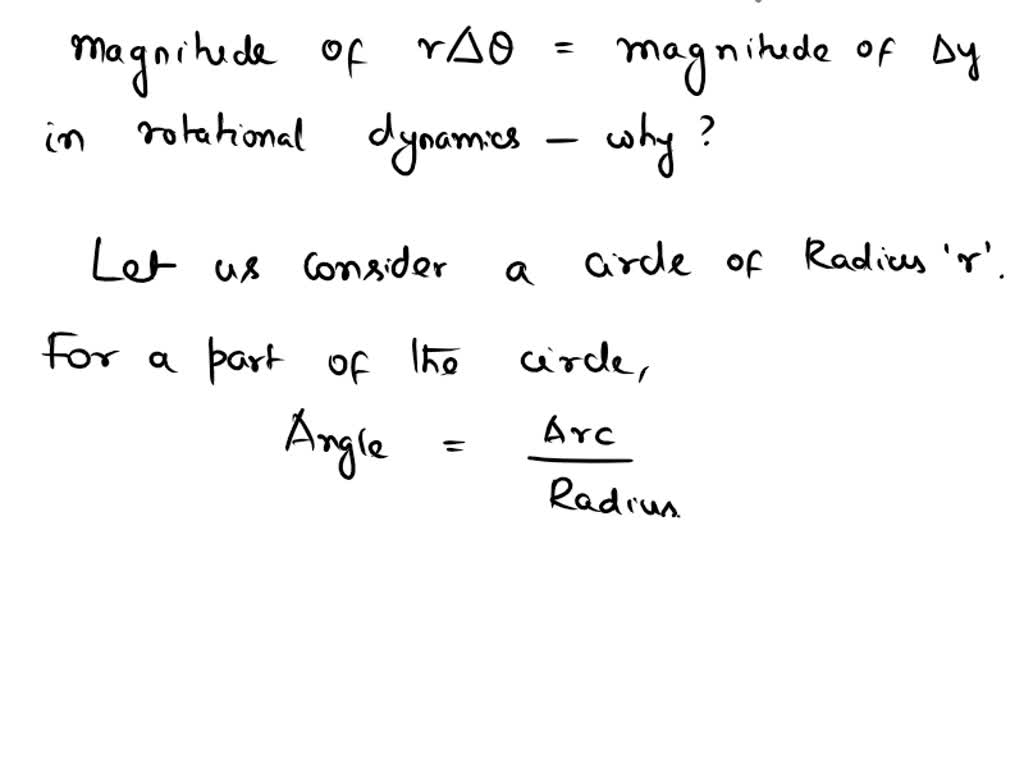 magnitude of rΔθ = magnitude of Δy
in rotational dynamics — why?
Let us consider a circle of Radius 'r'.
For a part of the circle,
Angle = Arc
Radius